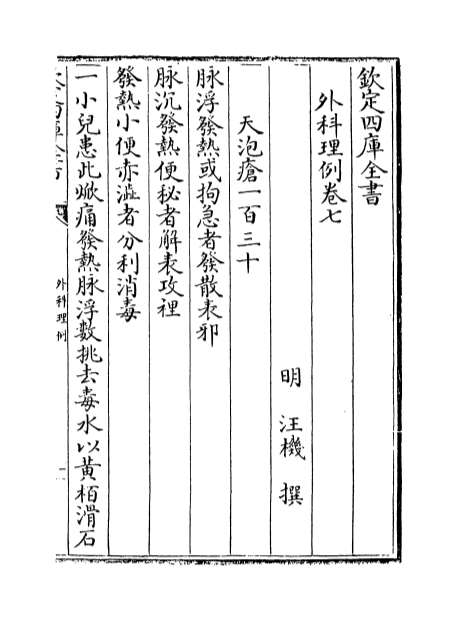 欽定四庫全書
外科理例卷七
明 汪機 撰
天泡瘡一百三十
脉浮發熱或拘急者發散表邪
脉沉發熱便秘者解表攻裡
發熱小便赤澁者分利消毒
一小兒患此焮痛發熱脉浮数挑去毒水以黃栢滑石
外科理例